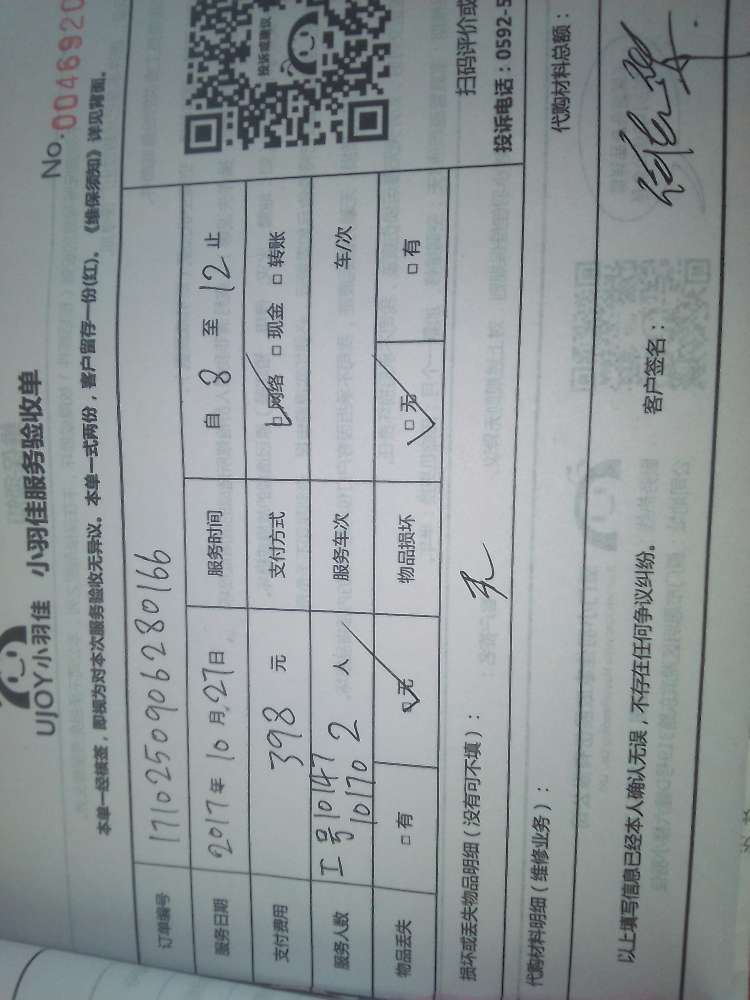 No:0046920
UJOY小羽佳 小羽佳服务验收单
本单一经核签，即视为对本次服务验收无异议。本单一式两份，客户留存一份(红)。《维保须知》详见背面。
订单编号 17102509062801​66
服务日期 2017年10月27日 服务时间 自 8 至 12 止
支付费用 398 元 支付方式 □网络 □现金 □转账
服务人数 工号10147 10170 2 人 服务车次 车/次
物品丢失 □有 □无 物品损坏 □无 □有
投诉或建议
扫码评价或
投诉电话：0592-5
损坏或丢失物品明细（没有可不填）： 无
代购材料明细（维修业务）： 代购材料总额：
以上填写信息已经本人确认无误，不存在任何争议纠纷。 客户签名：